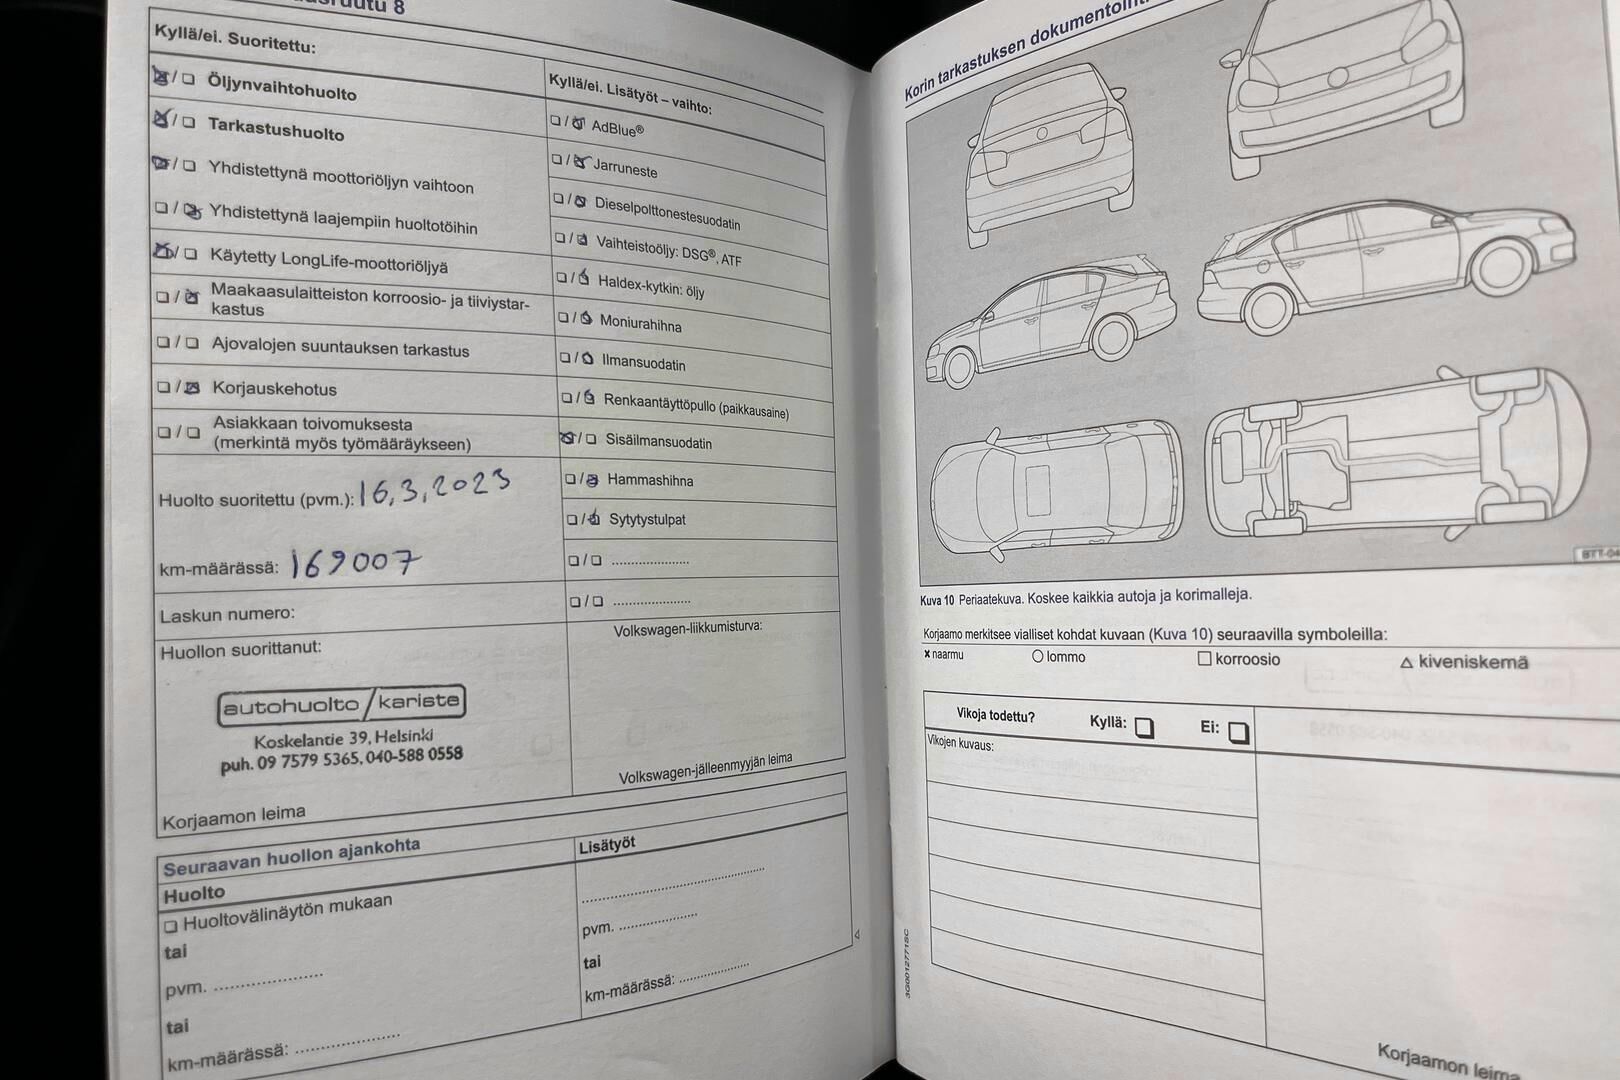 8
Kyllä/ei. Suoritettu:
☒/☐ Öljynvaihtohuolto
☒/☐ Tarkastushuolto
☒/☐ Yhdistettynä moottoriöljyn vaihtoon
☐/☒ Yhdistettynä laajempiin huoltotöihin
☒/☐ Käytetty LongLife-moottoriöljyä
☐/☒ Maakaasulaitteiston korroosio- ja tiiviystar-
kastus
☐/☐ Ajovalojen suuntauksen tarkastus
☐/☒ Korjauskehotus
☐/☐ Asiakkaan toivomuksesta
(merkintä myös työmääräykseen)
Huolto suoritettu (pvm.): 16,3,2023
km-määrässä: 169007
Laskun numero:
Huollon suorittanut:
autohuolto/kariste
Koskelantie 39, Helsinki
puh. 09 7579 5365, 040-588 0558
Korjaamon leima
Kyllä/ei. Lisätyöt – vaihto:
☐/☒ AdBlue®
☐/☒ Jarruneste
☐/☒ Dieselpolttonestesuodatin
☐/☒ Vaihteistoöljy: DSG®, ATF
☐/☒ Haldex-kytkin: öljy
☐/☒ Moniurahihna
☐/☒ Ilmansuodatin
☐/☒ Renkaantäyttöpullo (paikkausaine)
☒/☐ Sisäilmansuodatin
☐/☒ Hammashihna
☐/☒ Sytytystulpat
☐/☐ ....................
☐/☐ ....................
Volkswagen-liikkumisturva:
Volkswagen-jälleenmyyjän leima
Seuraavan huollon ajankohta
Huolto
☐ Huoltovälinäytön mukaan
tai
pvm. ............................
tai
km-määrässä: ...........................
Lisätyöt
..................................................
pvm. .....................
tai
km-määrässä: ..................
Korin tarkastuksen
Kuva 10 Periaatekuva. Koskee kaikkia autoja ja korimalleja.
Korjaamo merkitsee vialliset kohdat kuvaan (Kuva 10) seuraavilla symboleilla:
x naarmu ○ lommo □ korroosio △ kiveniskemä
Vikoja todettu? Kyllä: ☐ Ei: ☐
Vikojen kuvaus:
Korjaamon leima
3G0012771SC